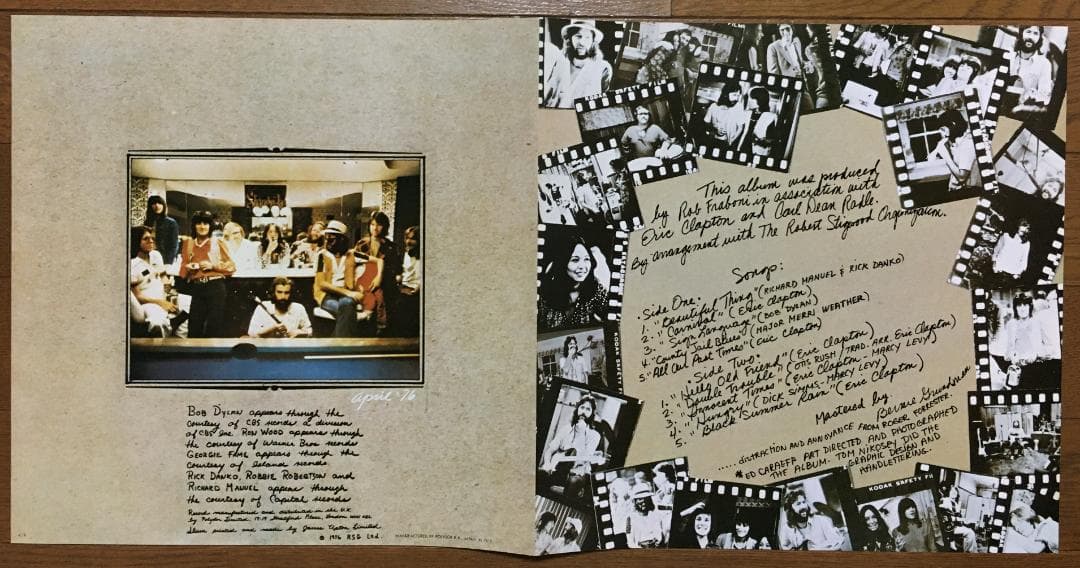 april '76
BOB DYLAN appears through the
courtesy of CBS records a division
of CBS Inc. RON WOOD appears through
the courtesy of Warner Bros records
GEORGIE FAME appears through the
courtesy of Island records.
RICK DANKO, ROBBIE ROBERTSON and
RICHARD MANUEL appear through
the courtesy of Capitol records
Record manufactured and distributed in the U.K
by Polydor Limited 17-19 Stratford Place, London
Album printed and made by James Upton Limited
© 1976 RSO Ltd.
KODAK SAFETY FILM
This album was produced
by Rob Fraboni in association with
Eric Clapton and Carl Dean Radle.
By arrangement with The Robert Stigwood Organization.
Songs:
Side One:
1. "Beautiful Thing" (RICHARD MANUEL & RICK DANKO)
2. "Carnival" (Eric Clapton)
3. "Sign Language" (BOB DYLAN)
4. "County Jail Blues" (MAJOR MERRI WEATHER)
5. "All Our Past Times" (Eric Clapton)
Side Two:
1. "Hello Old Friend" (Eric Clapton)
2. "Double Trouble" (OTIS RUSH / TRAD. ARR. Eric Clapton)
3. "Innocent Times" (Eric Clapton - MARCY LEVY)
4. "Hungry" (DICK SIMMS - MARCY LEVY)
5. "Black Summer Rain" (Eric Clapton)
Mastered by
Bernie Grundman
..... DISTRACTION AND ANNOYANCE FROM ROGER FORRESTER.
ED CARAEFF ART DIRECTED AND PHOTOGRAPHED
THE ALBUM. TOM NIKOSEY DID THE
GRAPHIC DESIGN AND
HANDLETTERING.
KODAK
KODAK SAFETY FI